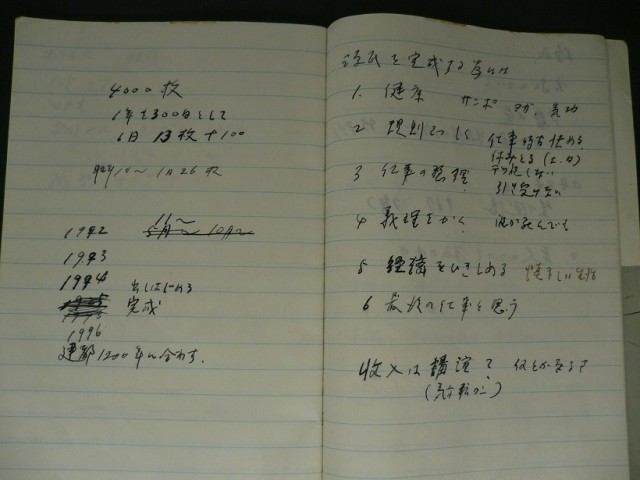 4000枚
1年を300日として
1日 13枚 +100
10〜 1日 26枚
1992 11〜 5月〜 10月〜
1993
1994 出しはじめる
完成
1996
建都1200年に合わす.
源氏を完成する為には
1. 健康 サンポ ヨガ. 気功
2 規則正しく 仕事時間決める
休みとる (土.日)
3 仕事の整理 引受けない
4 義理をかく 誰が死んでも
5 経済をひきしめる
6 最後の仕事と思う
収入は講演?
(気分転かん)